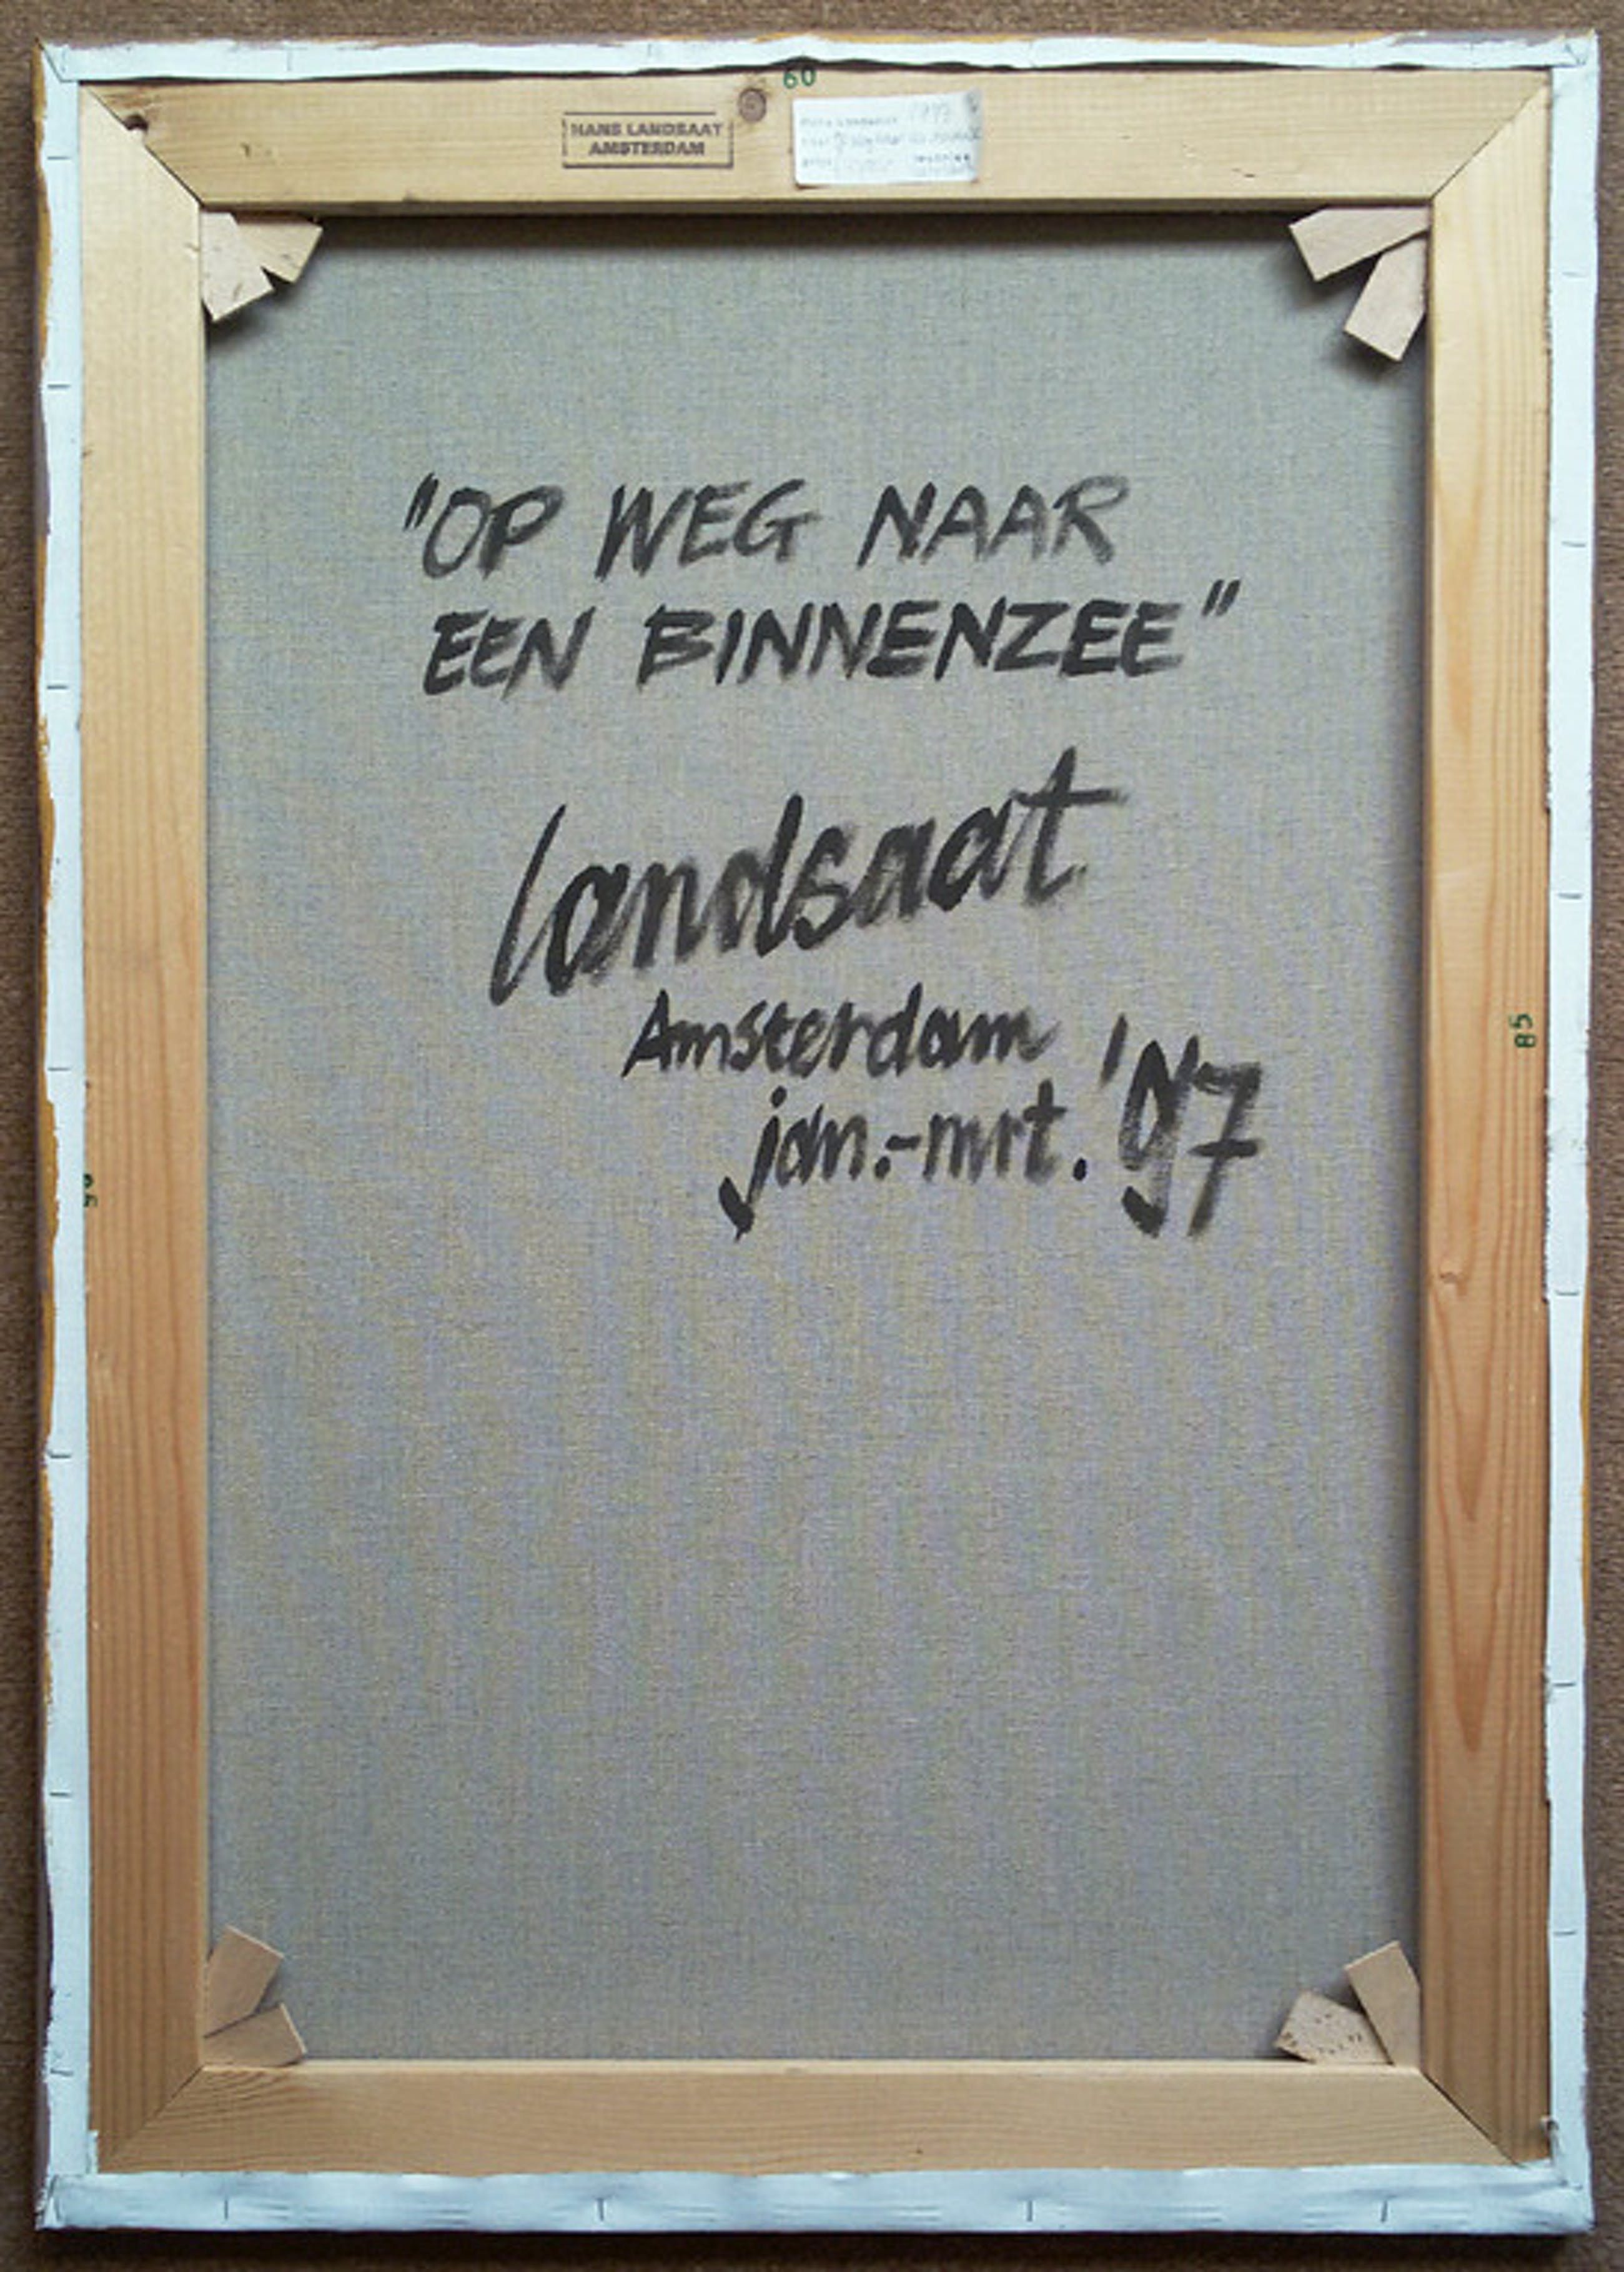 60
HANS LANDSAAT
AMSTERDAM
"OP WEG NAAR
EEN BINNENZEE"
Landsaat
Amsterdam
jan.-mrt. '97
85